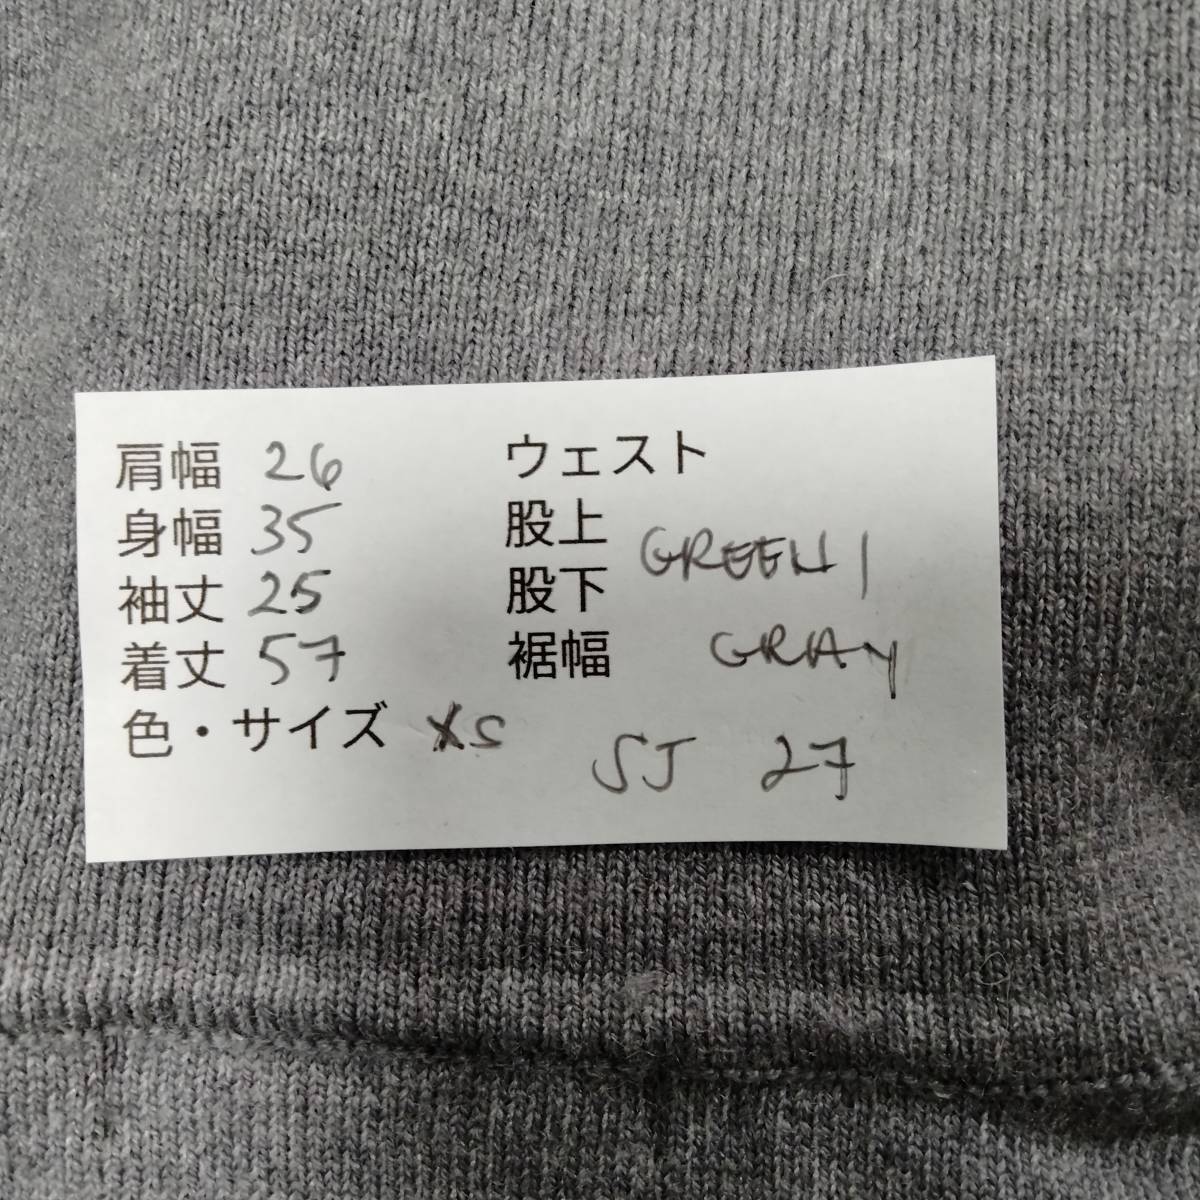 肩幅 26
身幅 35
袖丈 25
着丈 57
色・サイズ XS
ウェスト
股上
股下
裾幅
GREEN1
GRAY
SJ 27